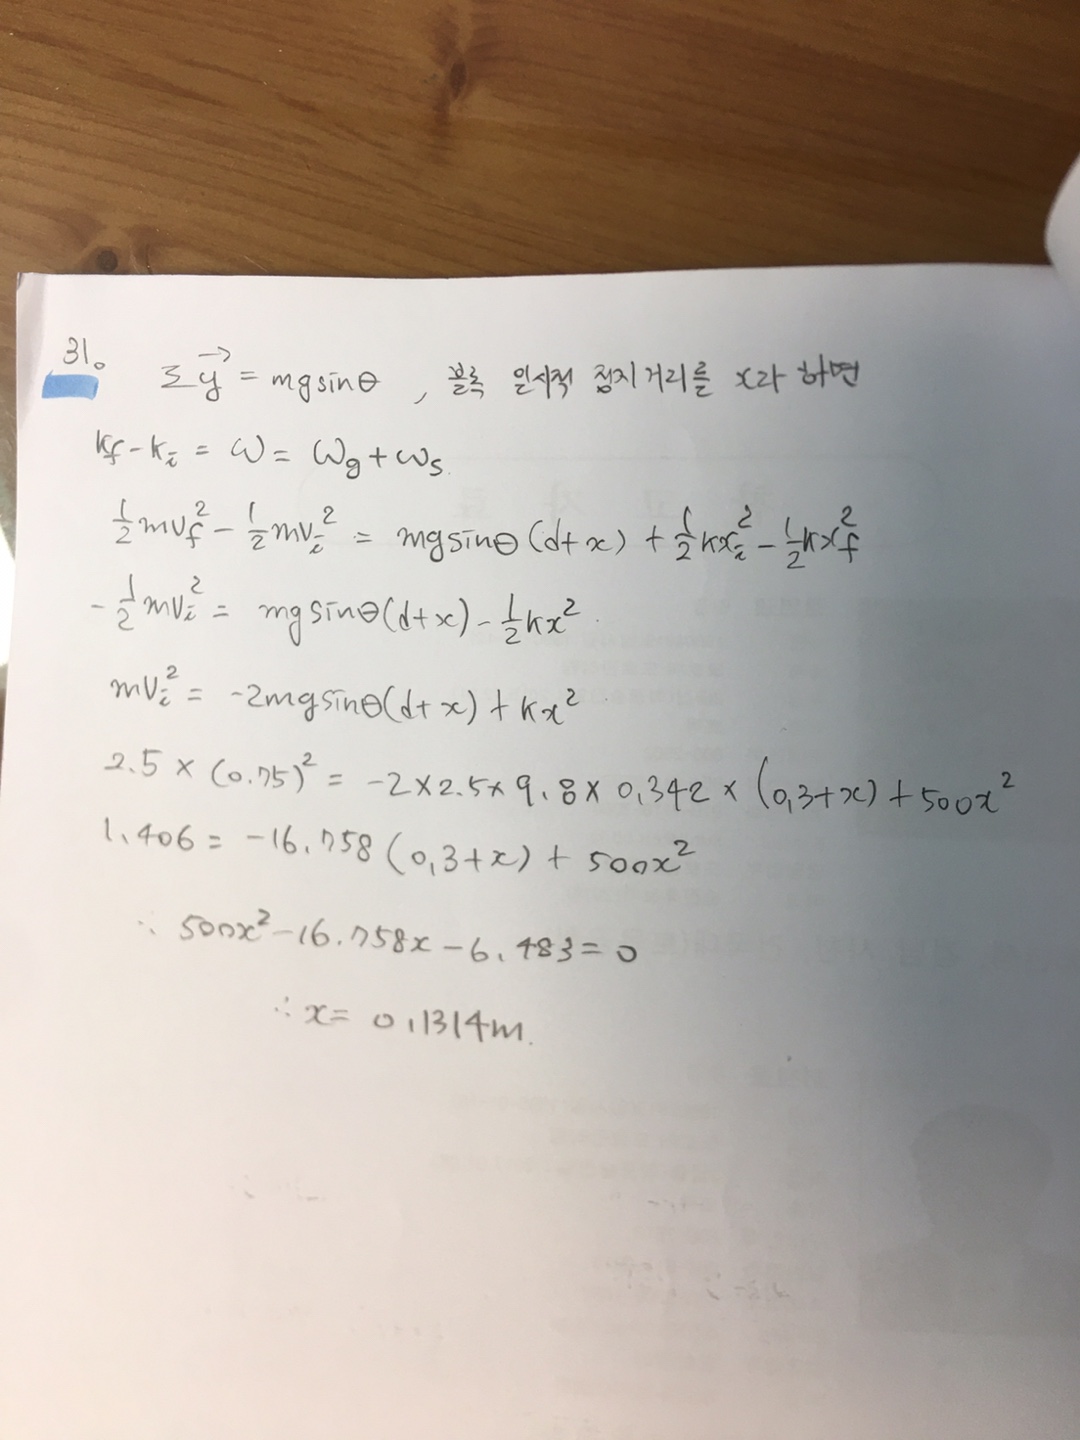 31.
Σy⃗ = mg sinθ , 블록 일시적 정지거리를 x라 하면
Kf - Ki = W = Wg + Ws.
½mvf² - ½mvi² = mg sinθ (d+x) + ½kxi² - ½kxf²
-½mvi² = mg sinθ(d+x) - ½kx².
mvi² = -2mg sinθ(d+x) + kx²
2.5 × (0.75)² = -2×2.5×9.8×0,342×(0,3+x)+500x²
1.406 = -16.758(0,3+x) + 500x²
∴ 500x²-16.758x-6.483=0
∴ x = 0,1314m.